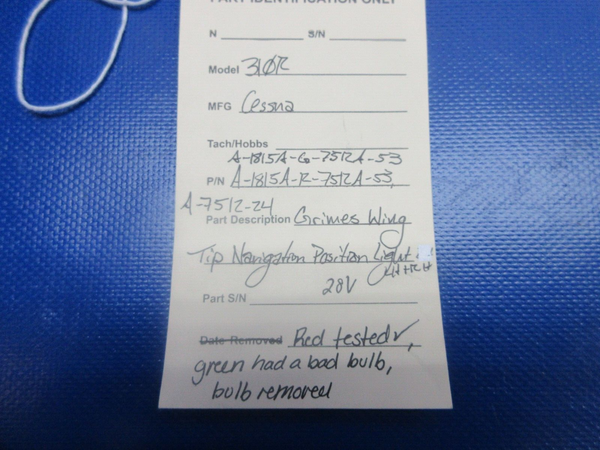 PART IDENTIFICATION ONLY
N S/N
Model 310R
MFG Cessna
Tach/Hobbs
A-1815A-G-7512A-53
P/N A-1815A-R-7512A-53,
A-7512-24
Part Description Grimes Wing
Tip Navigation Position Light
LH + RH
28V
Part S/N
Date Removed Red tested ✓,
green had a bad bulb,
bulb removed